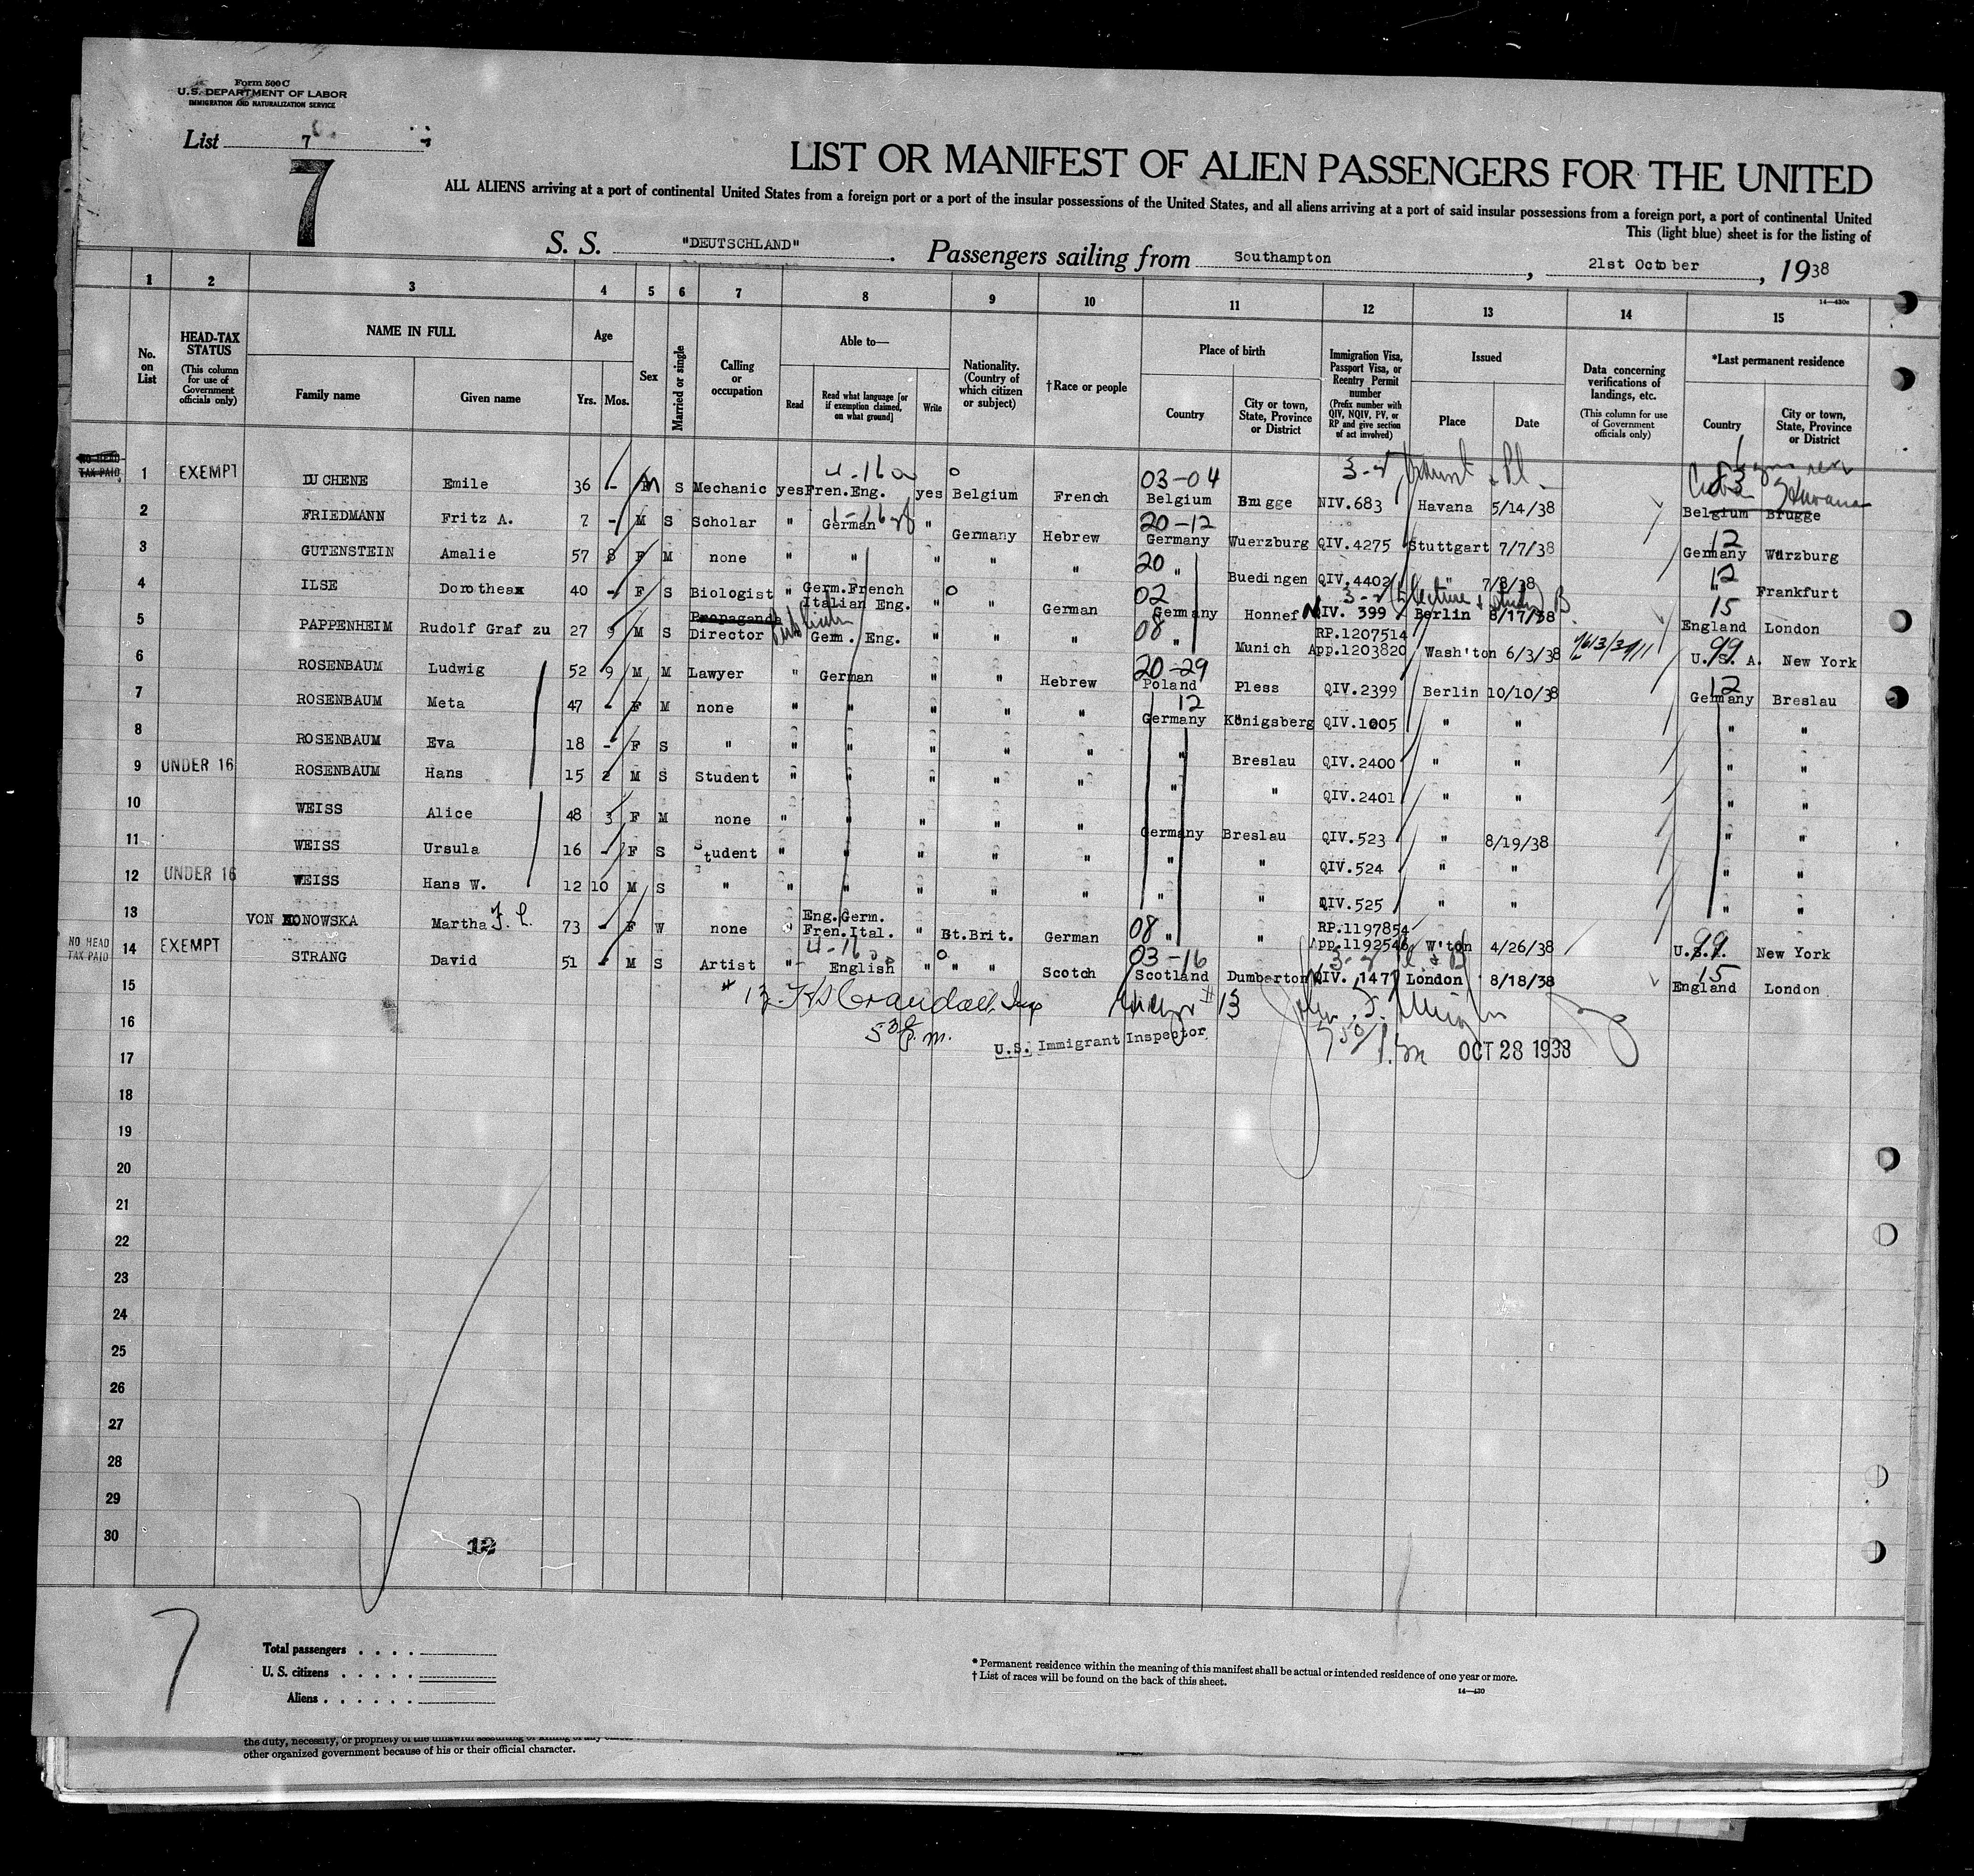 Form 500 C
U.S. DEPARTMENT OF LABOR
IMMIGRATION AND NATURALIZATION SERVICE
List 7
7
LIST OR MANIFEST OF ALIEN PASSENGERS FOR THE UNITED
ALL ALIENS arriving at a port of continental United States from a foreign port or a port of the insular possessions of the United States, and all aliens arriving at a port of said insular possessions from a foreign port, a port of continental United
This (light blue) sheet is for the listing of
S. S. "DEUTSCHLAND". Passengers sailing from Southampton, 21st October, 1938
14—430c
1 2 3 4 5 6 7 8 9 10 11 12 13 14 15
No. on List
HEAD-TAX STATUS (This column for use of Government officials only)
NAME IN FULL Family name Given name
Age Yrs. Mos.
Sex
Married or single
Calling or occupation
Able to— Read Read what language [or if exemption claimed, on what ground] Write
Nationality. (Country of which citizen or subject)
† Race or people
Place of birth Country City or town, State, Province or District
Immigration Visa, Passport Visa, or Reentry Permit number (Prefix number with QIV, NQIV, PV, or RP and give section of act involved)
Issued Place Date
Data concerning verifications of landings, etc. (This column for use of Government officials only)
*Last permanent residence Country City or town, State, Province or District
4-16 03-04 3-2 83 Cuba Havana
NO HEAD TAX PAID 1 EXEMPT DU CHENE Emile 36 - M S Mechanic yes Fren.Eng. yes Belgium French Belgium Brugge NIV.683 Havana 5/14/38 Belgium Brugge
20-12 12
2 FRIEDMANN Fritz A. 7 - M S Scholar " German " Germany Hebrew Germany Wuerzburg QIV.4275 Stuttgart 7/7/38 Germany Würzburg
20 12
3 GUTENSTEIN Amalie 57 8 F M none " " " " " " Buedingen QIV.4402 " 7/8/38 " Frankfurt
02 3-2 (Lecture & Study) B 15
4 ILSE Dorothea 40 - F S Biologist " Germ.French Italian Eng. " " German Germany Honnef NIV. 399 Berlin 8/17/38 England London
08 99
5 PAPPENHEIM Rudolf Graf zu 27 9 M S Propaganda Director " Germ. Eng. " " " " Munich RP.1207514 App.1203820 Wash'ton 6/3/38 U.S.A. New York
20-29 12
6 ROSENBAUM Ludwig 52 9 M M Lawyer " German " " Hebrew Poland Pless QIV.2399 Berlin 10/10/38 Germany Breslau
12
7 ROSENBAUM Meta 47 - F M none " " " " " Germany Königsberg QIV.1005 " " " "
8 ROSENBAUM Eva 18 - F S " " " " " " " Breslau QIV.2400 " " " "
9 UNDER 16 ROSENBAUM Hans 15 2 M S Student " " " " " " " QIV.2401 " " " "
10 WEISS Alice 48 3 F M none " " " " " Germany Breslau QIV.523 " 8/19/38 " "
11 WEISS Ursula 16 - F S Student " " " " " " " QIV.524 " " " "
12 UNDER 16 WEISS Hans W. 12 10 M S " " " " " " " " QIV.525 " " " "
08 99
13 VON KONOWSKA Martha 73 - F W none " Eng.Germ. Fren.Ital. " Bt.Brit. German " " RP.1197854 App.1192546 W'ton 4/26/38 U.S.A. New York
4-16 03-16 3-2 15
NO HEAD TAX PAID 14 EXEMPT STRANG David 51 - M S Artist " English " " " Scotch Scotland Dumberton QIV. 147 London 8/18/38 England London
15
# 13 Crandall, Insp # 13
16
5 30 P.m.
U.S. Immigrant Inspector
OCT 28 1938
17
18
19
20
21
22
23
24
25
26
27
28
29
30
12
7
Total passengers
U. S. citizens
Aliens
* Permanent residence within the meaning of this manifest shall be actual or intended residence of one year or more.
† List of races will be found on the back of this sheet.
14—430
other organized government because of his or their official character.